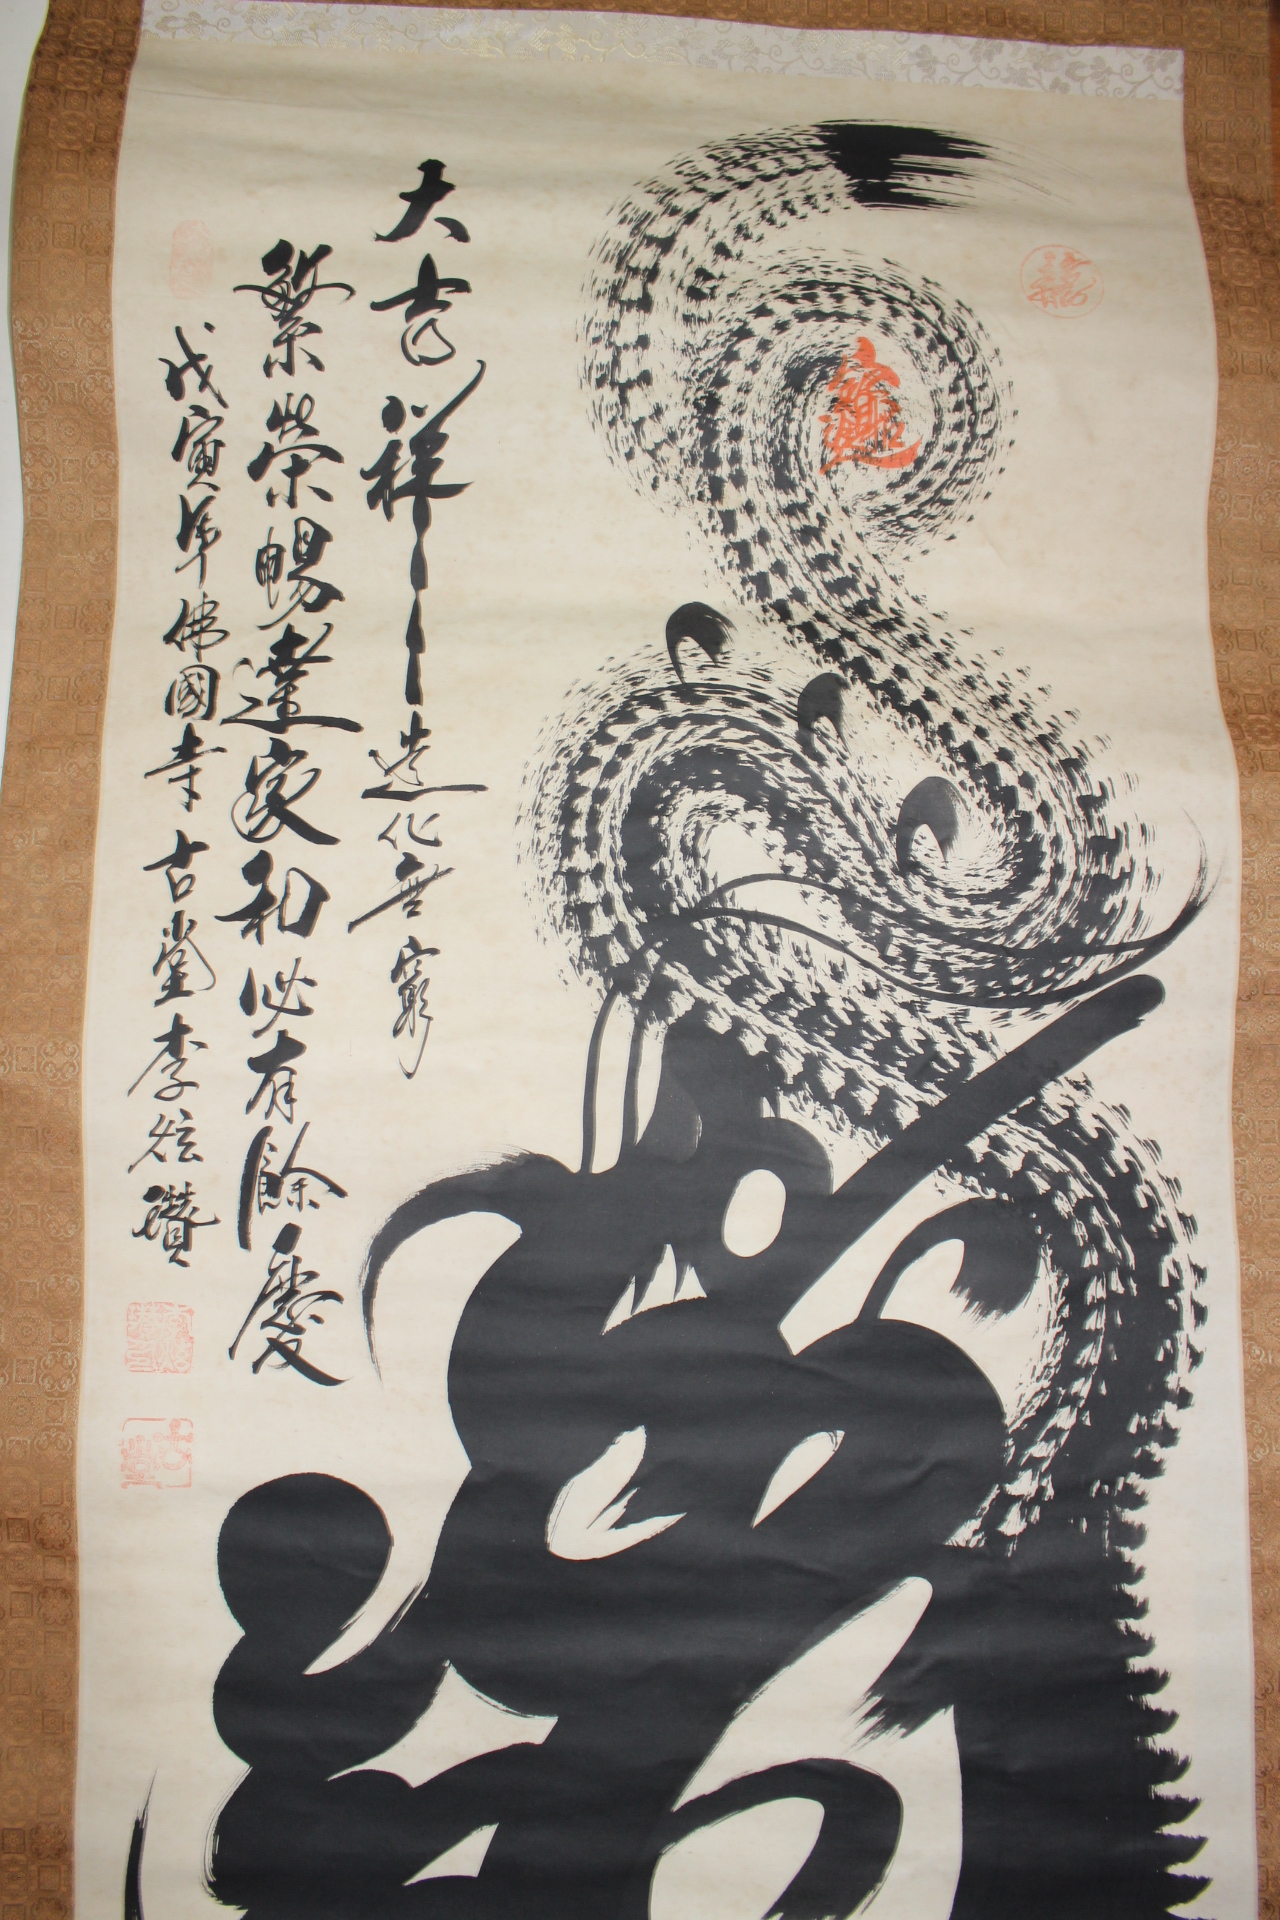 大吉祥 造化無窮
繁榮暢達家和必有餘慶
戊寅年佛國寺古堂李炫讚
古堂